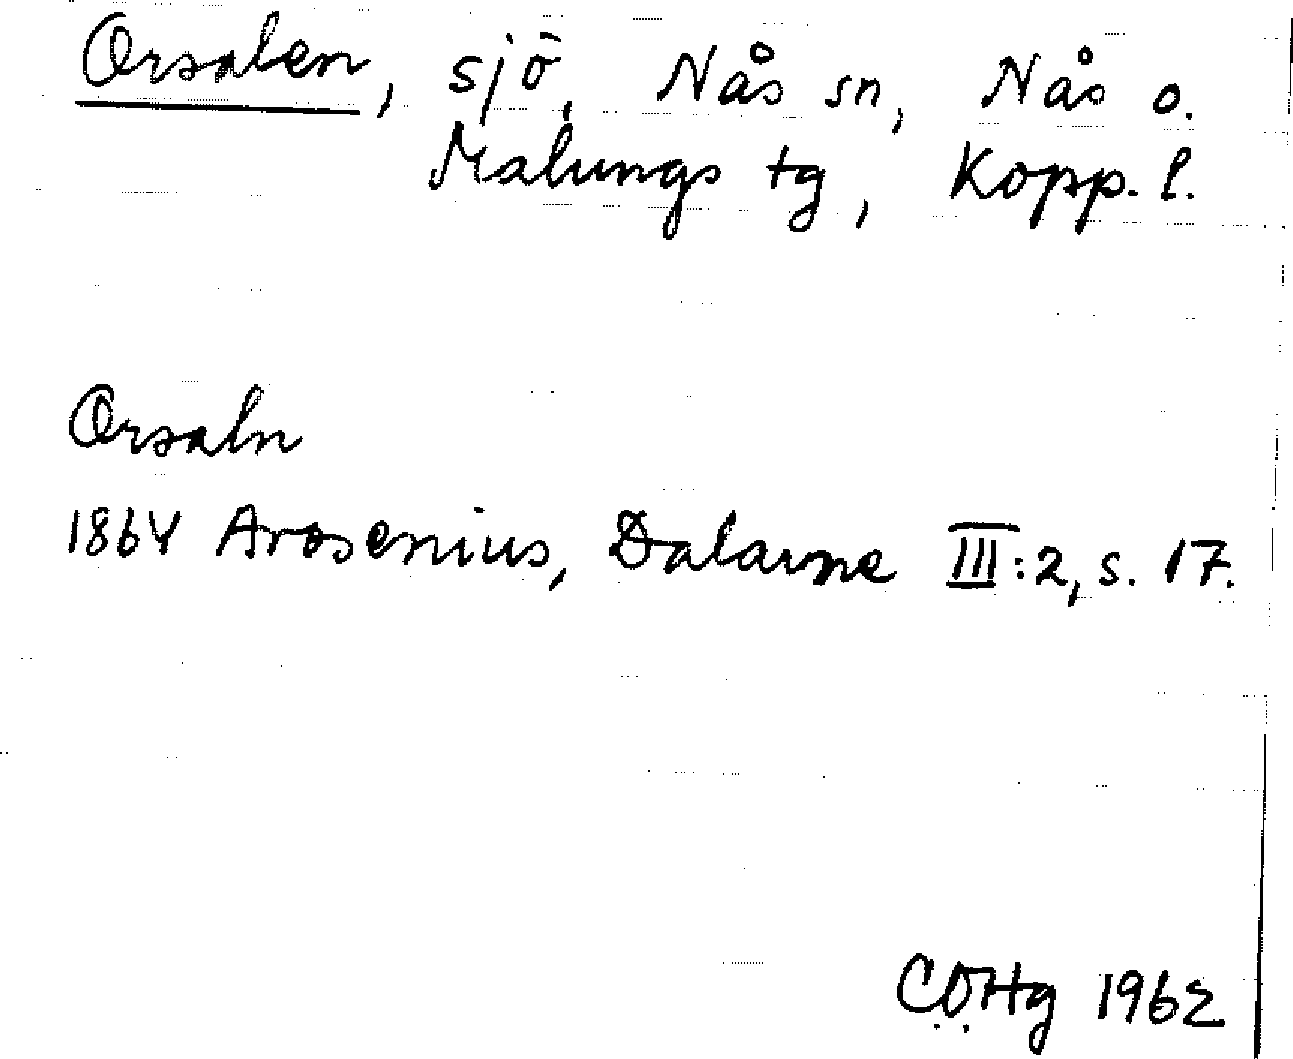 Orsalen, sjö, Nås sn, Nås o.
Malungs tg, Kopp. l.
Orsaln
1864 Arosenius, Dalarne III:2, s. 17.
CÖHg 1962